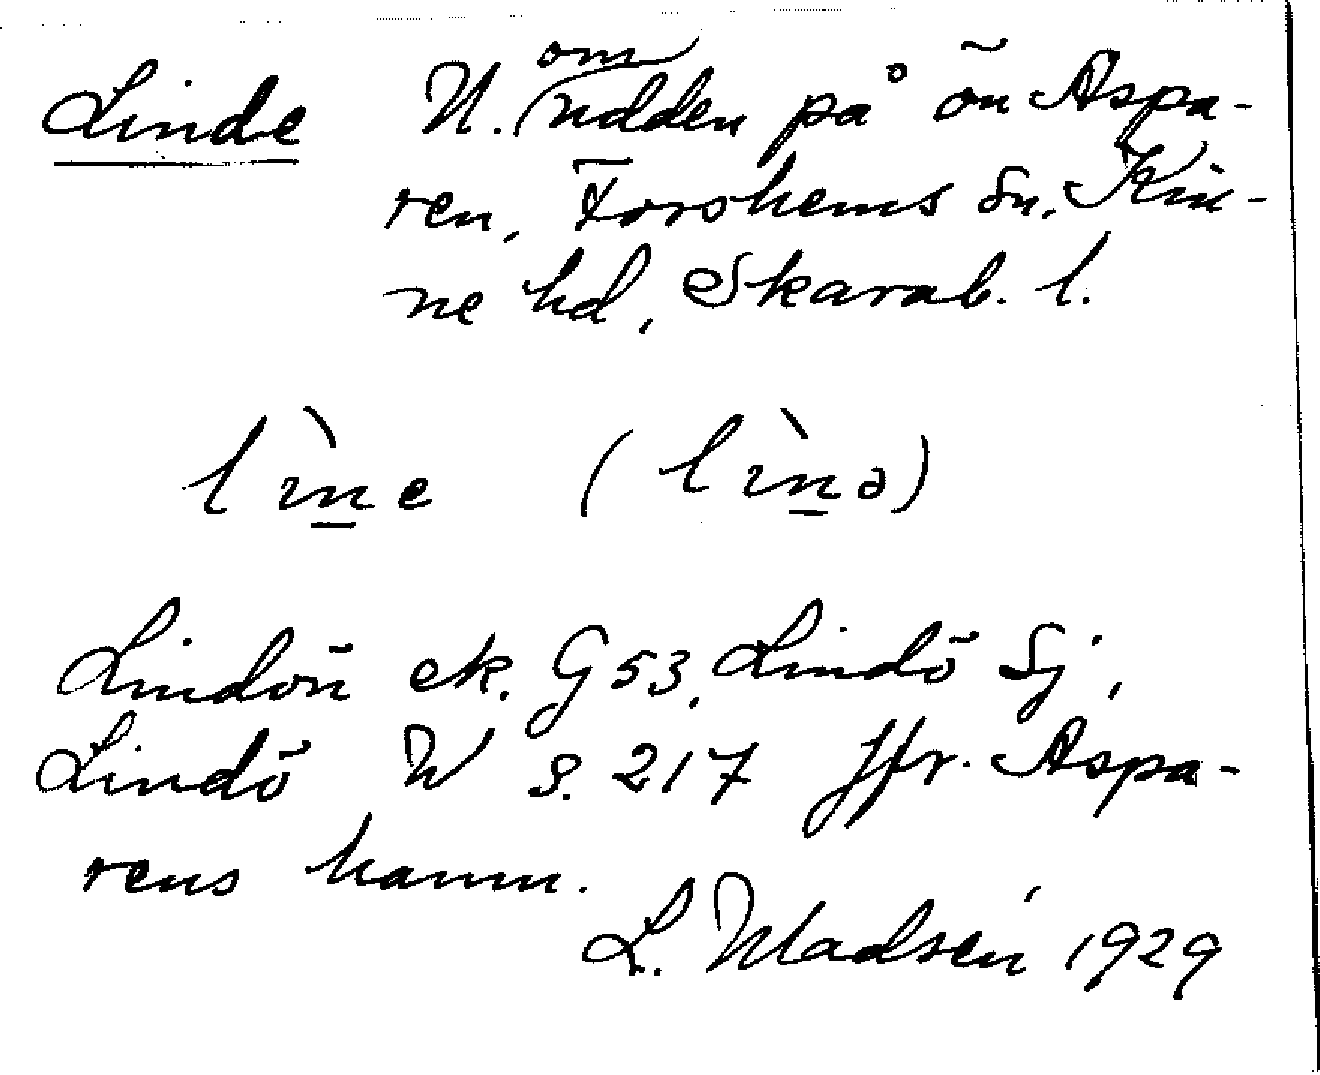 Linde N. om udden på ön Aspa-
ren, Forshems sn, Kin-
ne hd, Skarab. l.
lìne (lìnə)
Lindön ek. G 53, Lindö Sj,
Lindö W s. 217 Jfr. Aspa-
rens hamn.
L. Madsén 1929